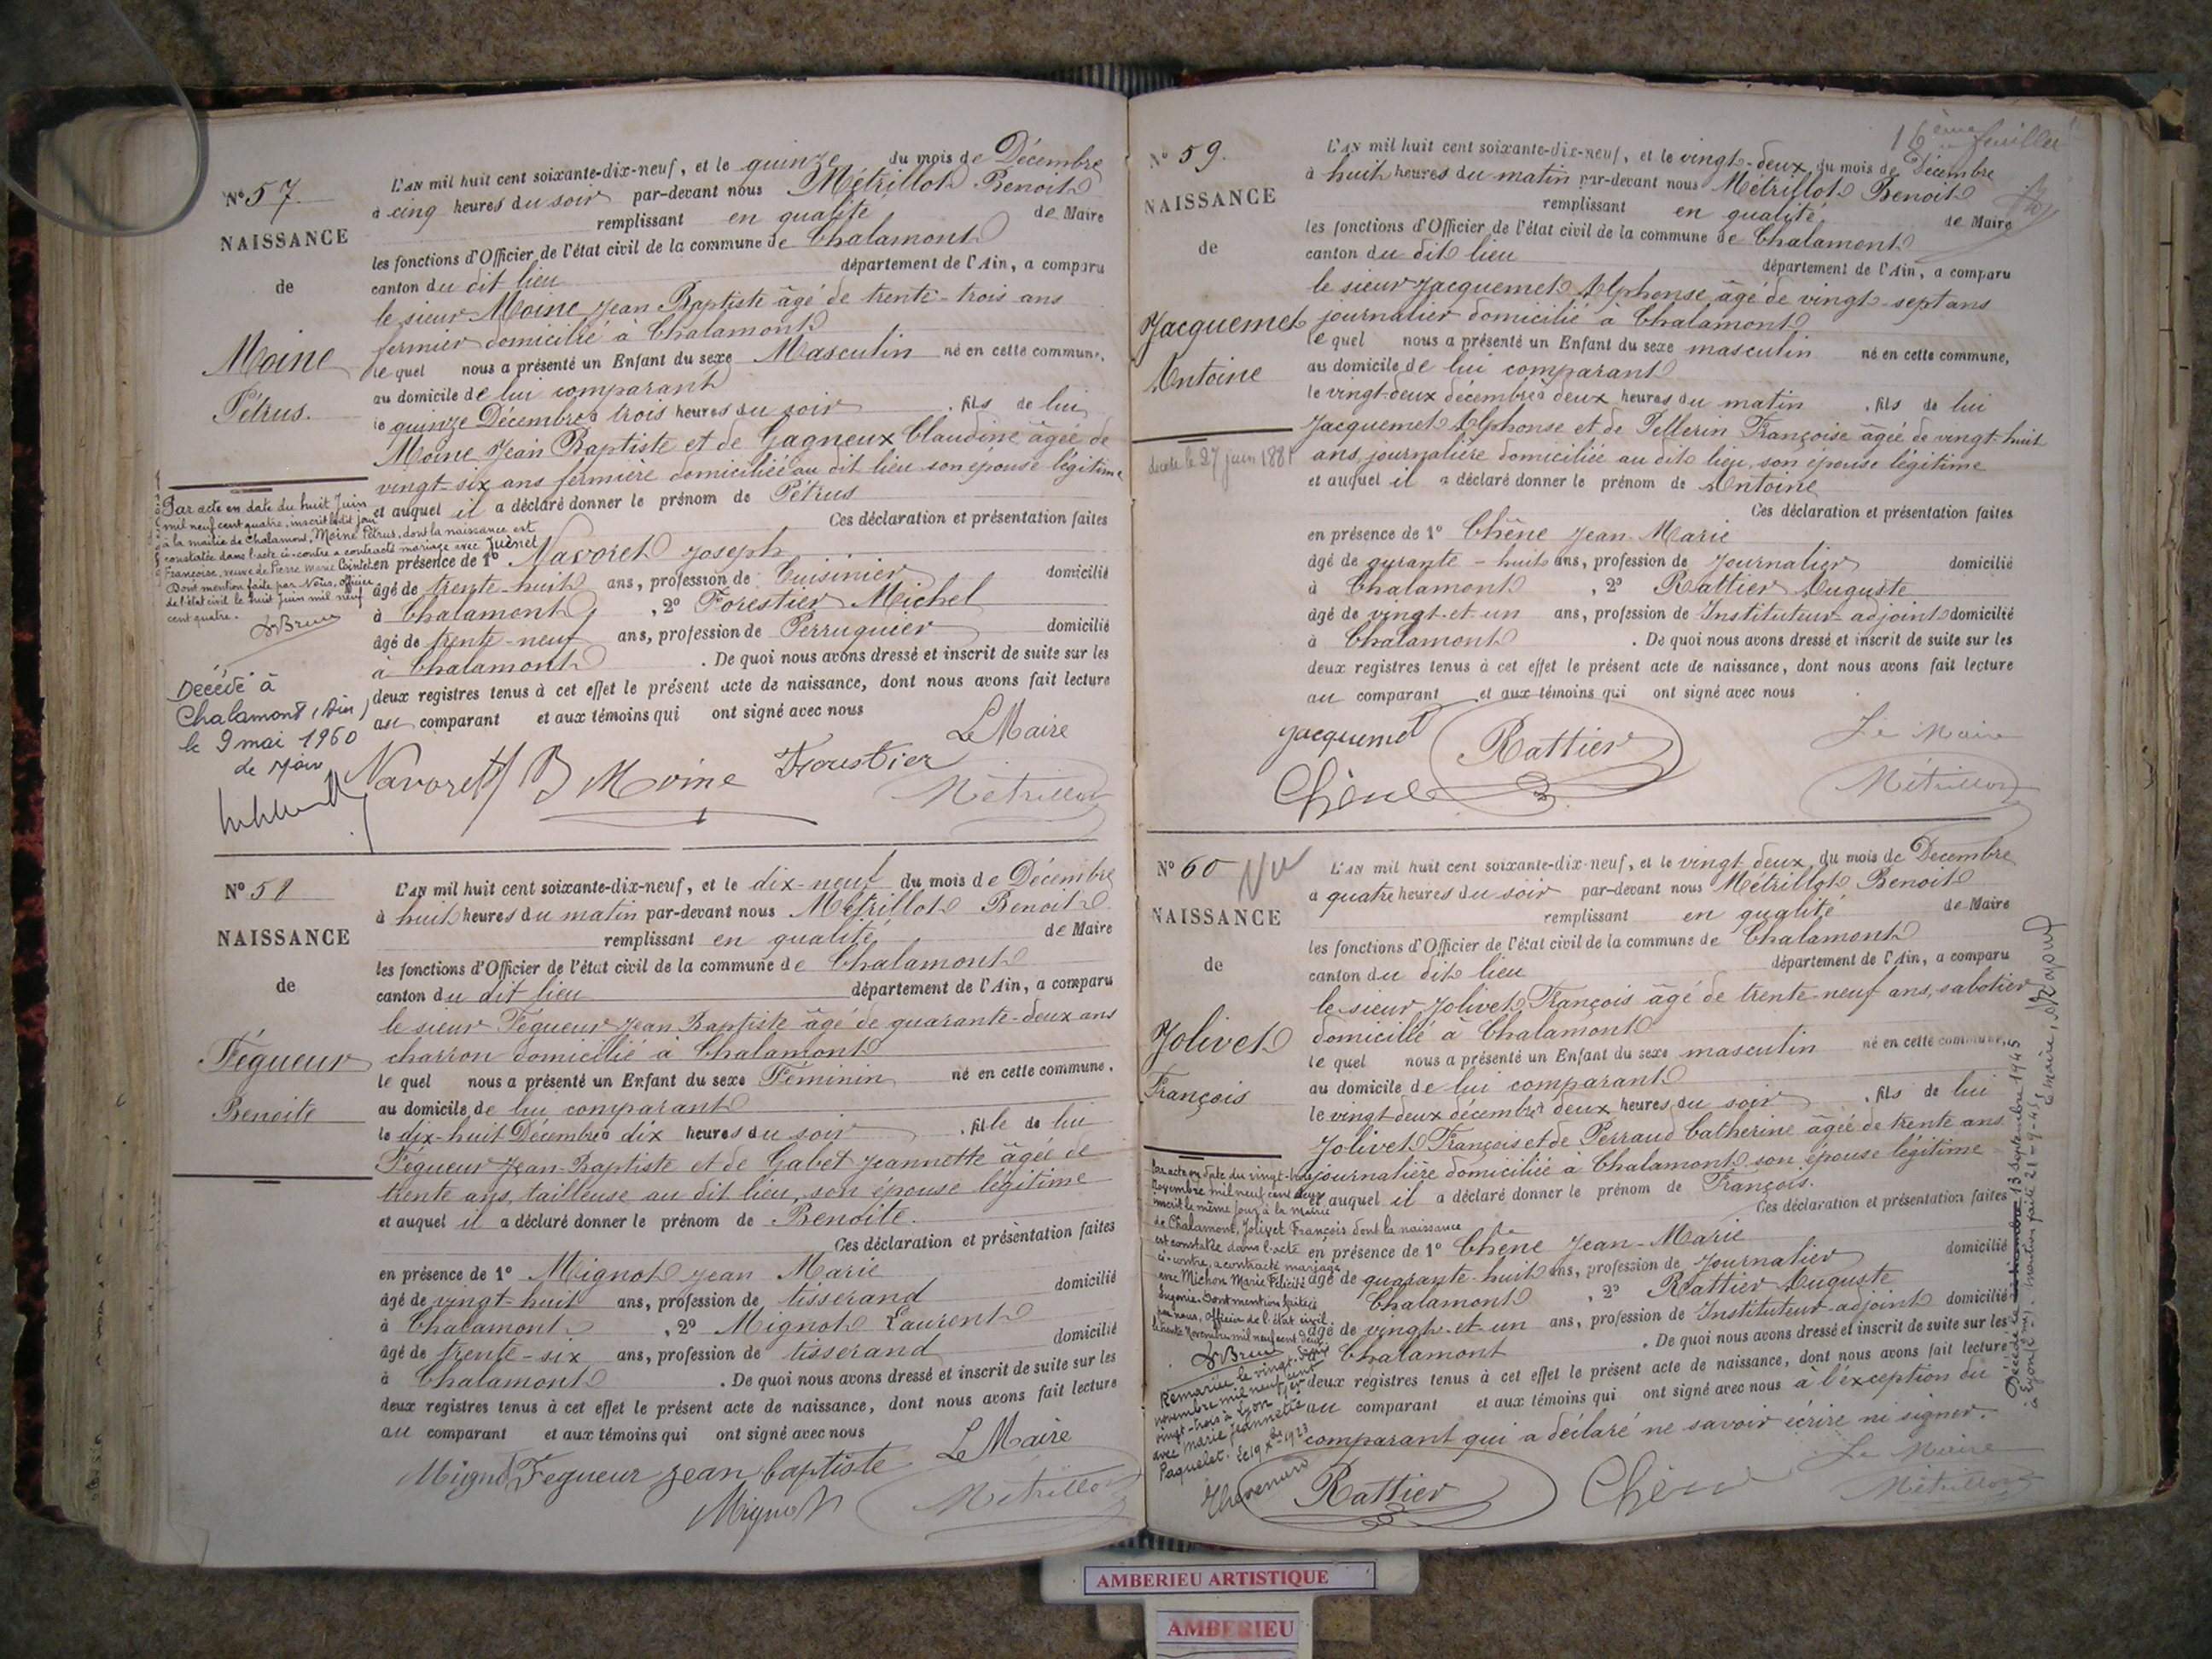 N° 57.
NAISSANCE
de
Moine
Pétrus.
L'AN mil huit cent soixante-dix-neuf, et le quinze du mois de Décembre
à cinq heures du soir par-devant nous Métrillot Benoit
remplissant en qualité de Maire
les fonctions d'Officier de l'état civil de la commune de Chalamont
canton du dit lieu département de l'Ain, a comparu
le sieur Moine Jean Baptiste âgé de trente-trois ans
fermier domicilié à Chalamont
le quel nous a présenté un Enfant du sexe Masculin né en cette commune,
au domicile de lui comparant
le quinze Décembre à trois heures du soir . fils de lui
Moine Jean Baptiste et de Gagneux Claudine âgée de
vingt-six ans fermière domiciliée au dit lieu son épouse légitime
et auquel il a déclaré donner le prénom de Pétrus
Ces déclaration et présentation faites
en présence de 1° Navoret Joseph
âgé de trente-huit ans, profession de Cuisinier domicilié
à Chalamont , 2° Forestier Michel
âgé de trente-neuf ans, profession de Perruquier domicilié
à Chalamont . De quoi nous avons dressé et inscrit de suite sur les
deux registres tenus à cet effet le présent acte de naissance, dont nous avons fait lecture
au comparant et aux témoins qui ont signé avec nous
Le Maire
Navoret JB Moine Forestier
Métrillot
Par acte en date du huit Juin
mil neuf cent quatre, inscrit ledit jour
à la mairie de Chalamont, Moine Pétrus, dont la naissance est
constatée dans l'acte ci-contre a contracté mariage avec Juénet
Françoise, veuve de Pierre Marie
Dont mention faite par Nous, officier
de l'état civil le huit Juin mil neuf
cent quatre.
Décédé à
Chalamont (Ain)
le 9 mai 1960
N° 58
NAISSANCE
de
Fégueur
Benoite
L'AN mil huit cent soixante-dix-neuf, et le dix-neuf du mois de Décembre
à huit heures du matin par-devant nous Métrillot Benoit
remplissant en qualité de Maire
les fonctions d'Officier de l'état civil de la commune de Chalamont
canton du dit lieu département de l'Ain, a comparu
le sieur Fégueur Jean Baptiste âgé de quarante-deux ans
charron domicilié à Chalamont
le quel nous a présenté un Enfant du sexe Féminin né en cette commune,
au domicile de lui comparant
le dix-huit Décembre à dix heures du soir . fille de lui
Fégueur Jean-Baptiste et de Gabet Jeannette âgée de
trente ans, tailleuse au dit lieu, son épouse légitime
et auquel il a déclaré donner le prénom de Benoite.
Ces déclaration et présentation faites
en présence de 1° Mignot Jean Marie
âgé de vingt-huit ans, profession de tisserand domicilié
à Chalamont , 2° Mignot Laurent
âgé de trente-six ans, profession de tisserand domicilié
à Chalamont . De quoi nous avons dressé et inscrit de suite sur les
deux registres tenus à cet effet le présent acte de naissance, dont nous avons fait lecture
au comparant et aux témoins qui ont signé avec nous
Le Maire
Mignot Fegueur jean baptiste
Mignot Métrillot
16ème feuillet
N° 59.
NAISSANCE
de
Jacquemet
Antoine
décédé le 27 juin 1881
L'AN mil huit cent soixante-dix-neuf, et le vingt-deux du mois de Décembre
à huit heures du matin par-devant nous Métrillot Benoit
remplissant en qualité de Maire
les fonctions d'Officier de l'état civil de la commune de Chalamont
canton du dit lieu département de l'Ain, a comparu
le sieur Jacquemet Alphonse âgé de vingt-sept ans
journalier domicilié à Chalamont
le quel nous a présenté un Enfant du sexe masculin né en cette commune,
au domicile de lui comparant
le vingt-deux décembre à deux heures du matin . fils de lui
Jacquemet Alphonse et de Pellerin Françoise âgée de vingt-huit
ans, journalière domiciliée au dit lieu, son épouse légitime
et auquel il a déclaré donner le prénom de Antoine
Ces déclaration et présentation faites
en présence de 1° Chêne Jean-Marie
âgé de qurante-huit ans, profession de Journalier domicilié
à Chalamont , 2° Rattier Auguste
âgé de vingt-et-un ans, profession de Instituteur-adjoint domicilié
à Chalamont . De quoi nous avons dressé et inscrit de suite sur les
deux registres tenus à cet effet le présent acte de naissance, dont nous avons fait lecture
au comparant et aux témoins qui ont signé avec nous
Jacquemet Rattier Le Maire
Chêne Métrillot
N° 60
NAISSANCE
de
Jolivet
François
L'AN mil huit cent soixante-dix-neuf, et le vingt-deux du mois de Décembre
à quatre heures du soir par-devant nous Métrillot Benoit
remplissant en qualité de Maire
les fonctions d'Officier de l'état civil de la commune de Chalamont
canton du dit lieu département de l'Ain, a comparu
le sieur Jolivet François âgé de trente-neuf ans, sabotier
domicilié à Chalamont
le quel nous a présenté un Enfant du sexe masculin né en cette commune,
au domicile de lui comparant
le vingt-deux décembre à deux heures du soir . fils de lui
Jolivet François et de Perraud Catherine âgée de trente ans
journalière domiciliée à Chalamont son épouse légitime
et auquel il a déclaré donner le prénom de François.
Ces déclaration et présentation faites
en présence de 1° Chêne Jean-Marie
âgé de quarante-huit ans, profession de Journalier domicilié
Chalamont , 2° Rattier Auguste
âgé de vingt-et-un ans, profession de Instituteur-adjoint domicilié
Chalamont . De quoi nous avons dressé et inscrit de suite sur les
deux registres tenus à cet effet le présent acte de naissance, dont nous avons fait lecture
au comparant et aux témoins qui ont signé avec nous à l'exception du
comparant qui a déclaré ne savoir écrire ni signer.
Le Maire
Rattier Chêne Métrillot
Par acte en date du vingt-trois
Novembre mil neuf cent deux
inscrit le même jour à la Mairie
de Chalamont, Jolivet François dont la naissance
est constatée dans l'acte
ci-contre, a contracté mariage
avec Michon Marie Félicité
Eugénie. Dont mention faite
par nous, Officier de l'état civil
le trente Novembre mil neuf cent deux
Remarié le vingt-deux
novembre mil neuf cent
vingt-trois à Lyon
avec Marie Jeannette
Paquelet. Le 19 Xbre 1923
Décédé le 13 Septembre 1945
à Lyon mention faite 21-9-45
le maire,
AMBERIEU ARTISTIQUE
AMBERIEU